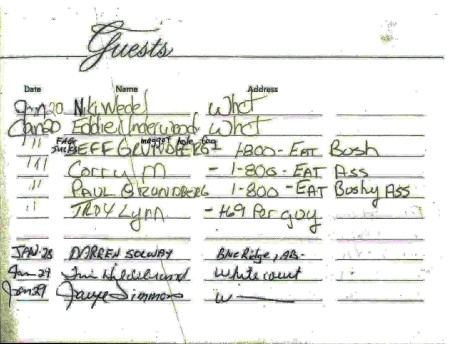 Guests
Date Name Address
Jan 20 Niki Wedel Whct
Jan 20 Eddie Underwood Whct
" JEFF GRUNDBERG - 1-800- EAT Bush
" Corry M - 1-800- EAT ASS
" PAUL GRUNDBERG - 1-800 - EAT Bushy Ass
" TROY Lynn - 469 Por guy
JAN. 28 DARREN SOLWAY Blue Ridge, AB.
Jan 29 Whitecourt
Jan 29 Simmons W